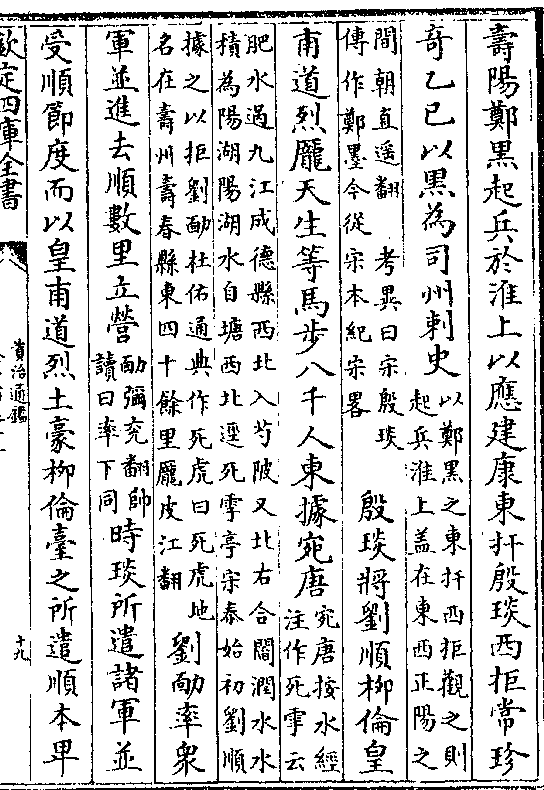 壽陽鄭黒起兵於淮上以應建康東扞殷琰西拒常珍
竒乙巳以黒為司州刺史
以鄭黒之東扞西拒觀之則
起兵淮上盖在東西正陽之
間朝直遥翻 考異曰宋殷琰
傳作鄭墨今從宋本紀宋畧
殷琰將劉順柳倫皇
甫道烈龎天生等馬步八千人東據宛唐
宛唐按水經
注作死雩云
肥水過九江成德縣西北入芍陂又北右合閻澗水水
積為陽湖陽湖水自塘西北逕死雩亭宋泰始初劉順
據之以拒劉勔杜佑通典作死虎曰死虎地
名在壽州壽春縣東四十餘里龎皮江翻
劉勔率衆
軍並進去順數里立營
勔彌兖翻帥
讀曰率下同
時琰所遣諸軍並
受順節度而以皇甫道烈土豪柳倫臺之所遣順本卑
欽定四庫全書
資治通鑑
十九